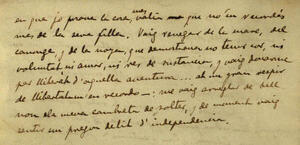 en que jo prouva la cara, més valia que no'm recordés
mes de la seva filla. Vaig renegar de la mare, del
canonge, y de la noya, que demostrava no tenir cor, ni
voluntat ni amor, ni res de sustancia, y vaig donarme
per lliberat d'aquella aventura... ab un gran sospir
de llibertat m'en recordo: me vaig arreglar de bell
nou la meva cambreta de solter, y de moment vaig
sentir un pregon delit d'independencia.